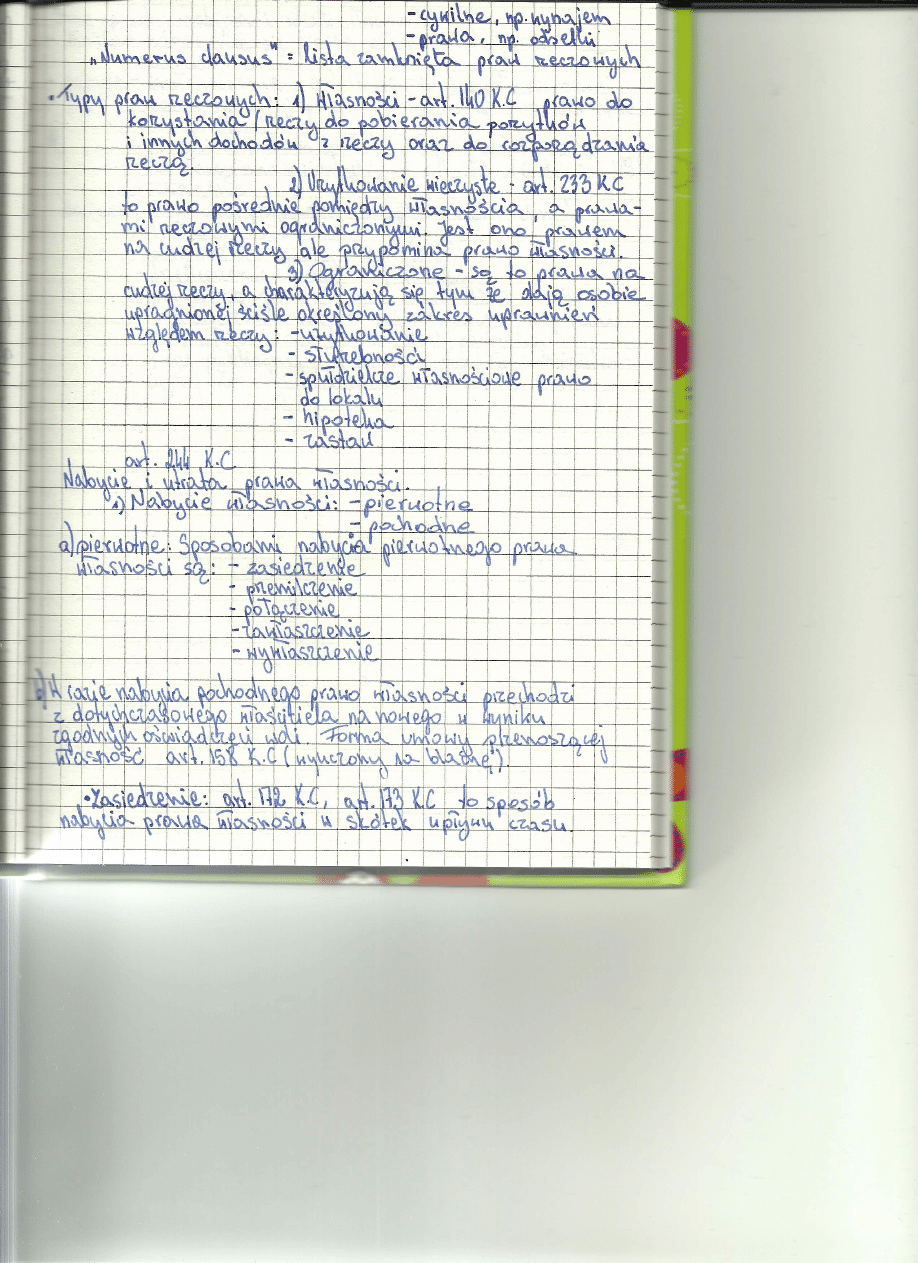 - cywilne, np. wynajem
- prawa, np. odsetki
„Numerus clausus" = lista zamknięta praw rzeczowych
• Typy praw rzeczowych: 1) własności - art. 140 K.C prawo do
korzystania / rzeczy do pobierania pożytków
i innych dochodów z rzeczy oraz do rozporządzania
rzeczą.
2) Użytkowanie wieczyste - art. 233 K.C
to prawo pośrednie pomiędzy własnością, a prawa-
mi rzeczowymi ograniczonymi. Jest ono prawem
na cudzej rzeczy ale przypomina prawo własności.
3) Ograniczone - są to prawa na
cudzej rzeczy, a charakteryzują się tym że dają osobie
uprawnionej ściśle określony zakres uprawnień
względem rzeczy: - użytkowanie
- służebności
- spółdzielcze własnościowe prawo
do lokalu
- hipoteka
- zastaw
art. 244 K.C
Nabycie i utrata prawa własności.
1) Nabycie własności: - pierwotne
- pochodne
a) pierwotne: Sposobami nabycia pierwotnego prawa
własności są: - zasiedzenie
- przemilczenie
- połączenie
- zawłaszczenie
- wywłaszczenie
b) W razie nabycia pochodnego prawo własności przechodzi
z dotychczasowego właściciela na nowego w wyniku
zgodnych oświadczeń woli. Forma umowy przenoszącej
własność art. 158 K.C (wyuczony na blachę).
• Zasiedzenie: art. 172 K.C, art. 173 K.C to sposób
nabycia prawa własności w skótek upływu czasu.